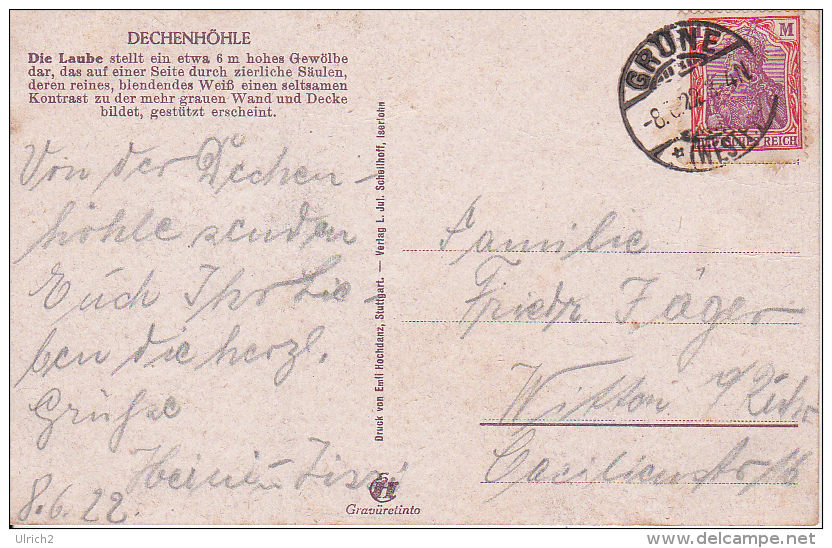 DECHENHÖHLE
Die Laube stellt ein etwa 6 m hohes Gewölbe
dar, das auf einer Seite durch zierliche Säulen,
deren reines, blendendes Weiß einen seltsamen
Kontrast zu der mehr grauen Wand und Decke
bildet, gestützt erscheint.
Von der Dechen-
höhle senden
Euch Ihr Lie-
ben die herzl.
Grüße
Heini u
8.6.22.
Druck von Emil Hochdanz, Stuttgart. — Verlag L. Jul. Schellhoff, Iserlohn
Gravüretinto
GRÜNE
(WESTF.)
M
REICH
Familie
Friedr. Jäger
Witten a/Ruhr
Cacilienstr.
© Ulrich2
www.delcampe.net